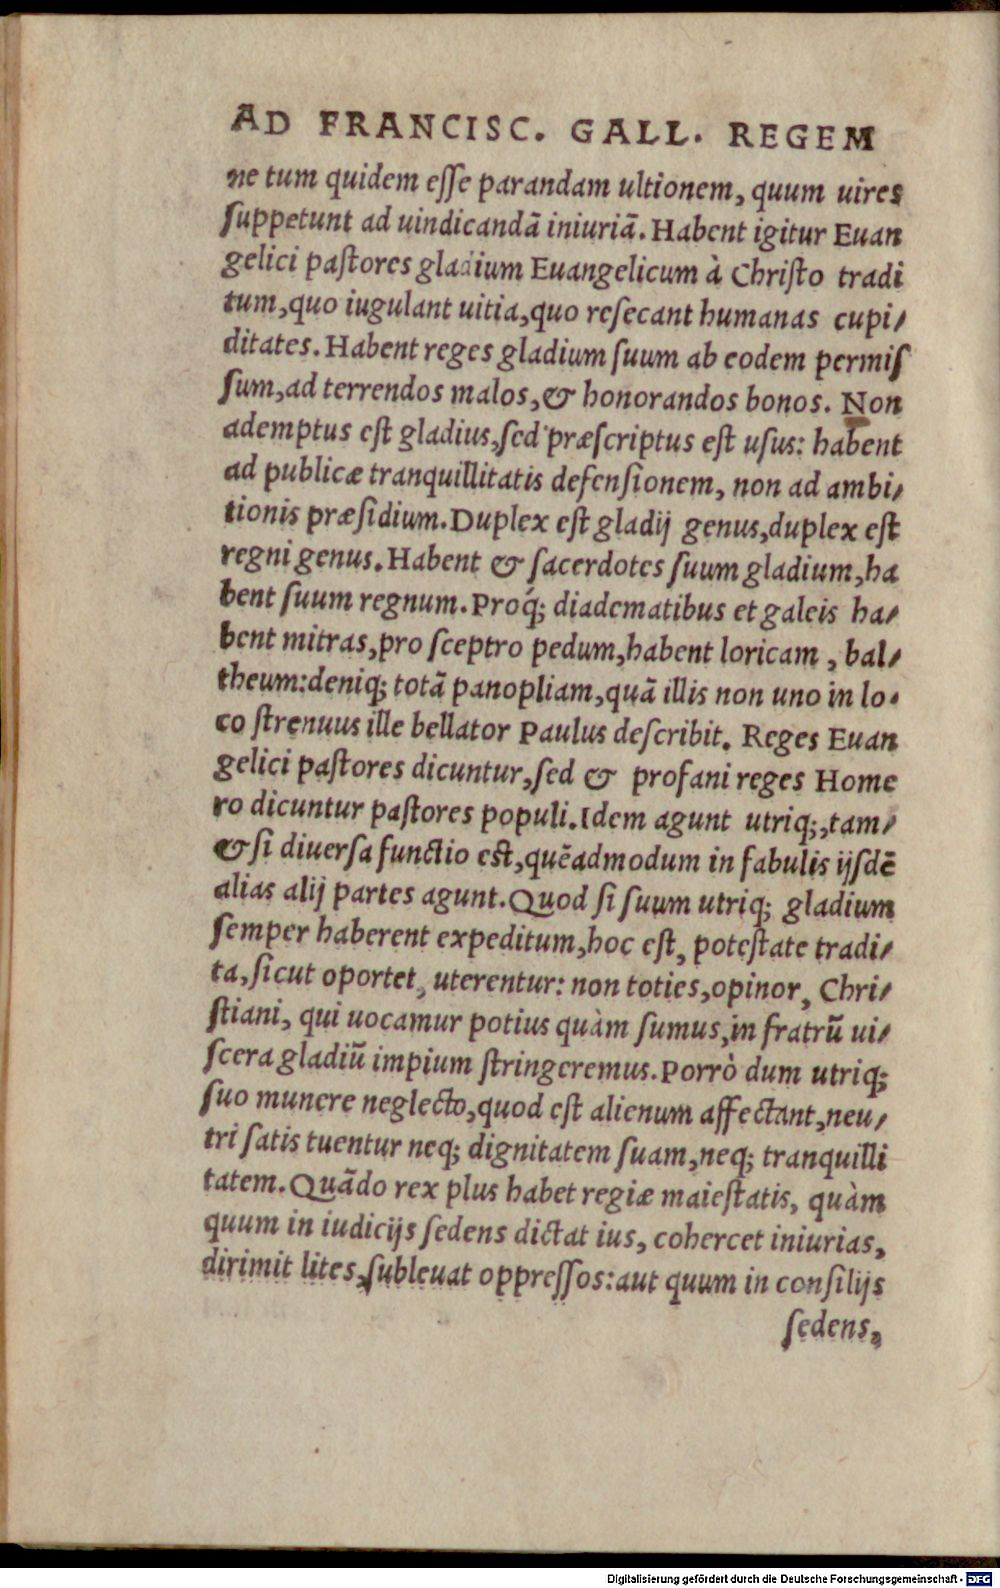 AD FRANCISC. GALL. REGEM
ne tum quidem eſſe parandam ultionem, quum uires
ſuppetunt ad uindicandā iniuriā. Habent igitur Euan
gelici paſtores gladium Euangelicum à Chriſto tradi
tum, quo iugulant uitia, quo reſecant humanas cupi/
ditates. Habent reges gladium ſuum ab eodem permiſ
ſum, ad terrendos malos, & honorandos bonos. Non
ademptus eſt gladius, ſed præſcriptus eſt uſus: habent
ad publicæ tranquillitatis defenſionem, non ad ambi/
tionis præſidium. Duplex eſt gladij genus, duplex eſt
regni genus. Habent & ſacerdotes ſuum gladium, ha
bent ſuum regnum. Proq́; diadematibus et galeis ha/
bent mitras, pro ſceptro pedum, habent loricam, bal/
theum: deniq; totā panopliam, quā illis non uno in lo/
co ſtrenuus ille bellator Paulus deſcribit. Reges Euan
gelici paſtores dicuntur, ſed & profani reges Home
ro dicuntur paſtores populi. Idem agunt utriq;, tam/
& ſi diuerſa functio eſt, quēadmodum in fabulis ijſdē
alias alij partes agunt. Quod ſi ſuum utriq; gladium
ſemper haberent expeditum, hoc eſt, poteſtate tradi/
ta, ſicut oportet, uterentur: non toties, opinor, Chri/
ſtiani, qui uocamur potius quàm ſumus, in fratrū ui/
ſcera gladiū impium ſtringeremus. Porrò dum utriq;
ſuo munere neglecto, quod eſt alienum affectant, neu/
tri ſatis tuentur neq; dignitatem ſuam, neq; tranquilli
tatem. Quādo rex plus habet regiæ maieſtatis, quàm
quum in iudicijs ſedens dictat ius, cohercet iniurias,
dirimit lites, ſubleuat oppreſſos: aut quum in conſilijs
ſedens,
Digitalisierung gefördert durch die Deutsche Forschungsgemeinschaft - DFG